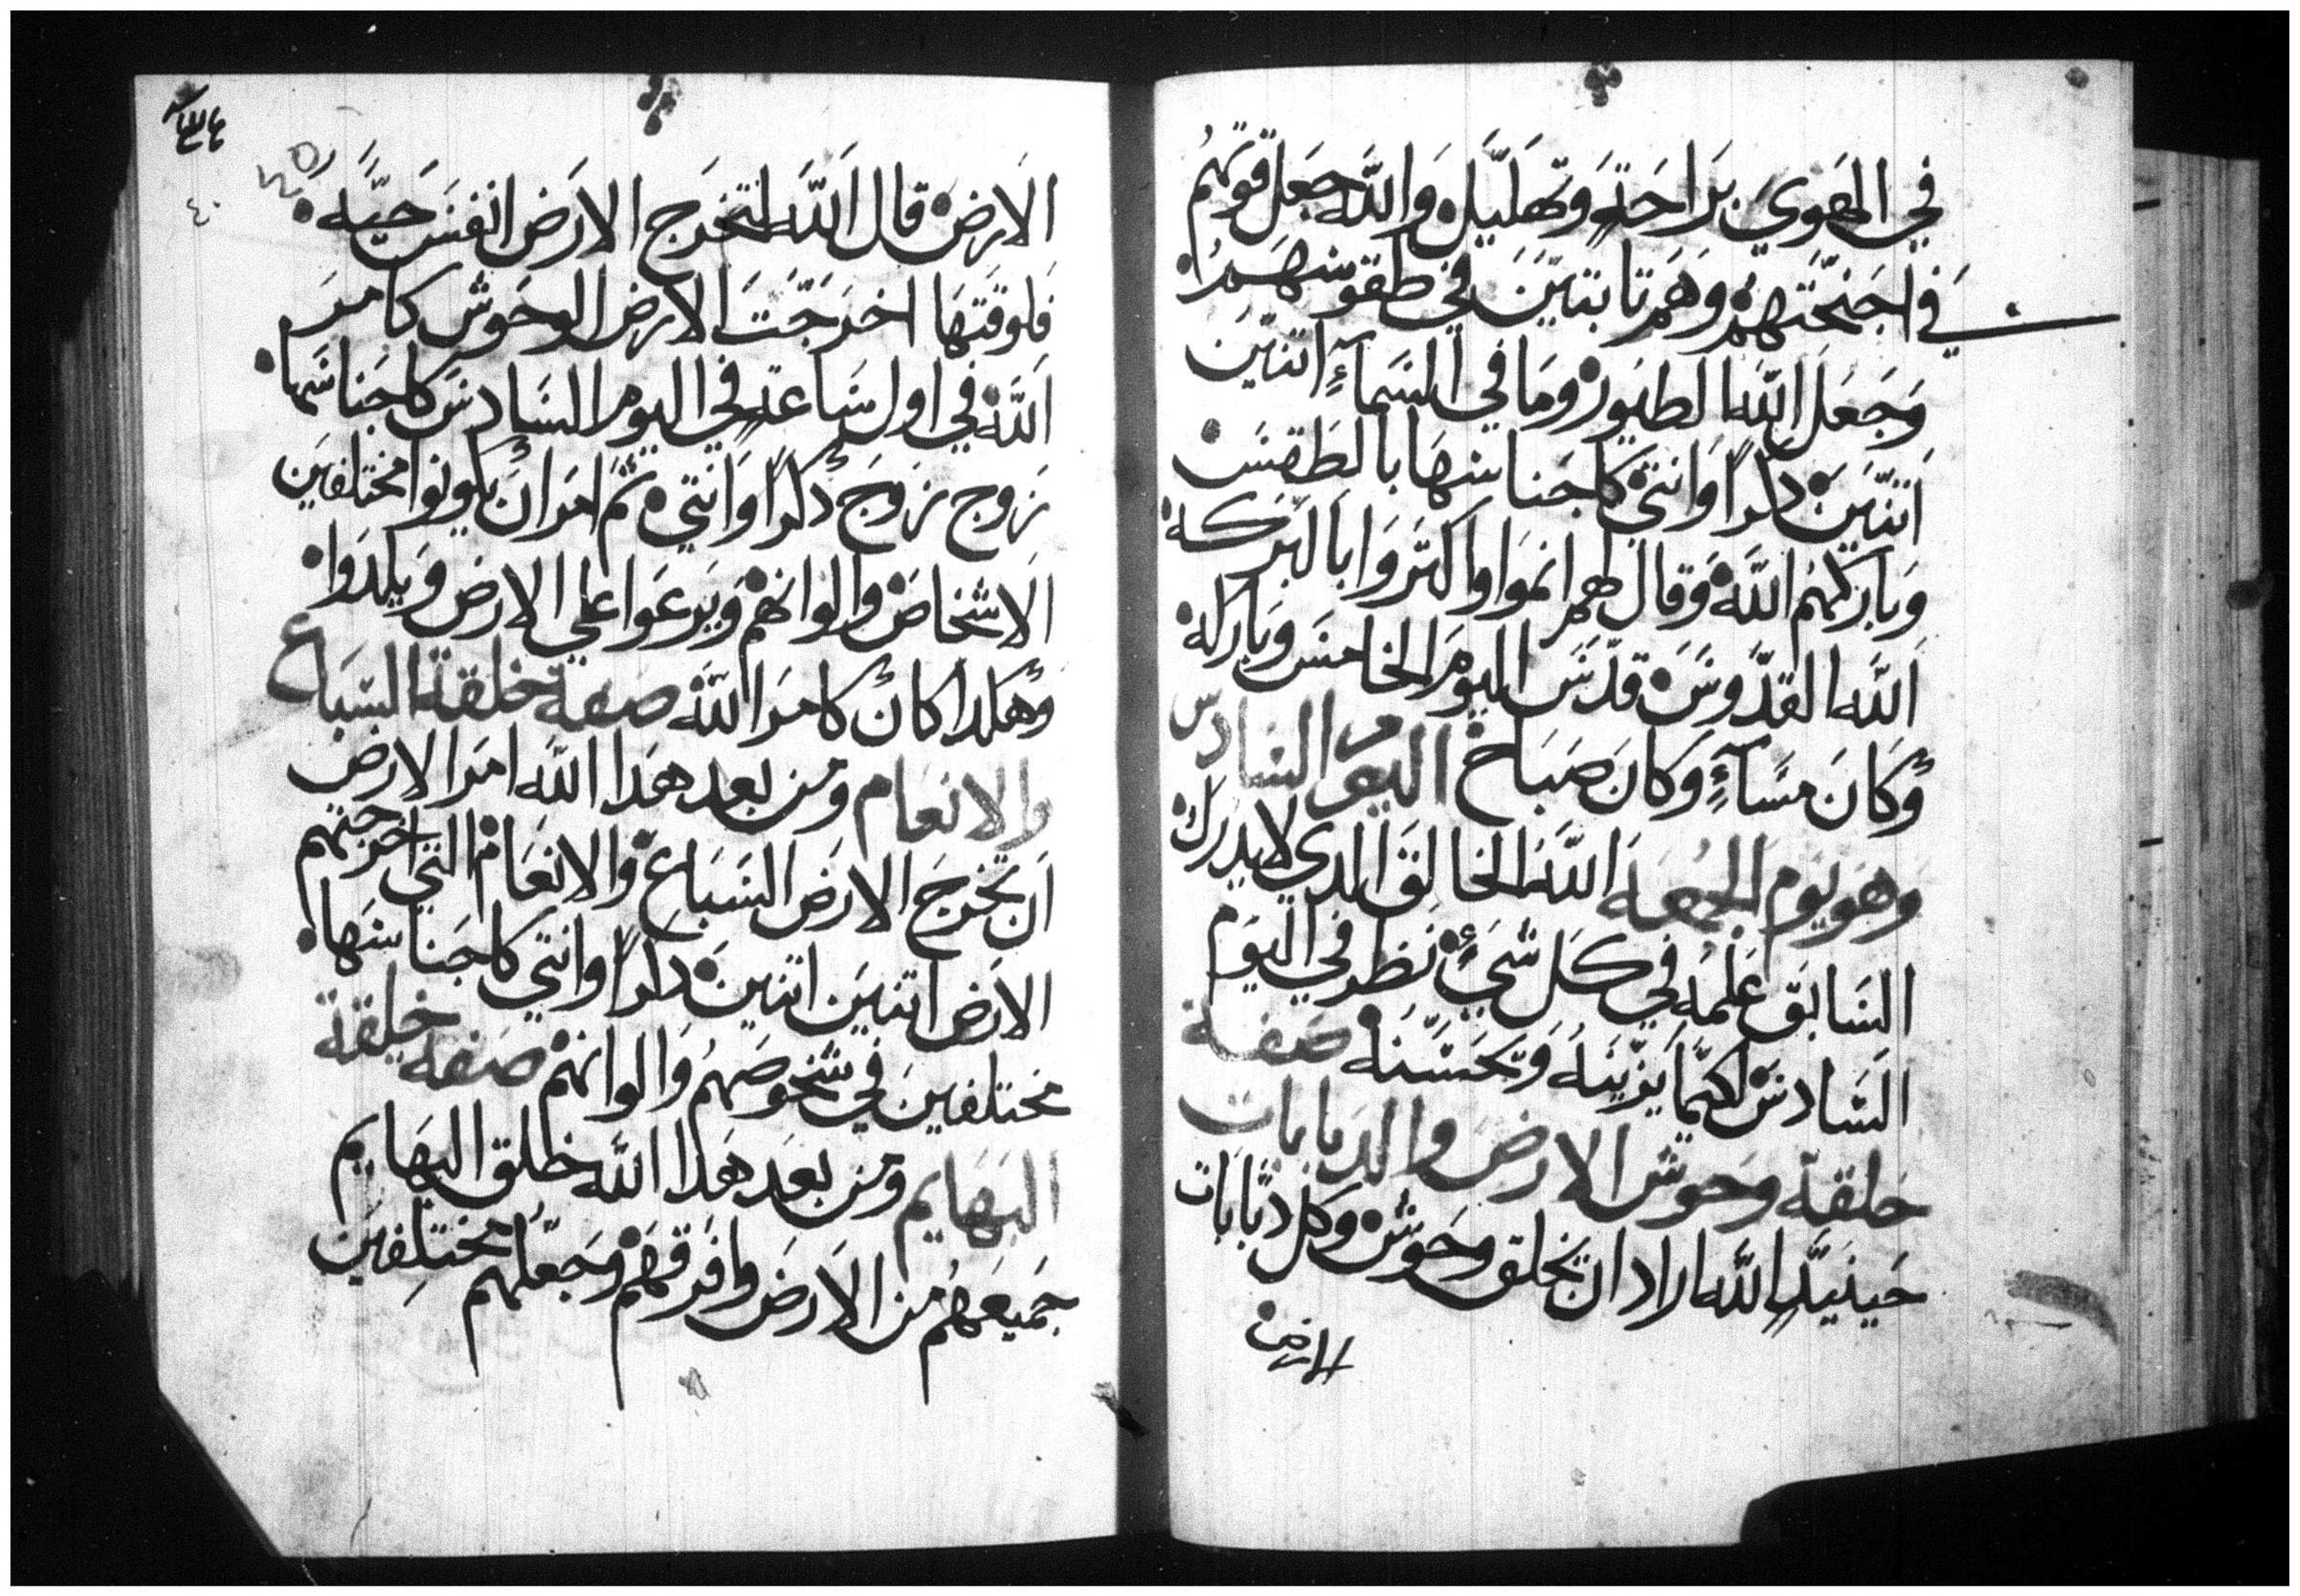 في الهَوَيَ بَراحَةٍ وَتهَليَّلٍ وَاللّه جعَل قوتهمُ
في اجَنحَّتَهمْ وَهَم تابتيّنَ في طقوسهَمْ
وَجَعَلَ اللّهَ الطيَورْ ومَا في السَمآءٍ اتنيّن
اَتنيّنَ دكراً وَانتي كاجَناسهَا بالطَقسَ
وَبارَكهُم اللّهَ وَقال لهمَ انموَا وَاكترَوَا بالبَركه
اَللّه القدّوسَ قدّسَ اليوَم الخامسَ وَبَاركه
وَكانَ مسَآءٍ وَكانَ صَباحَ اليوَم السَادس
وَهوَ يوَم الجمُعَه اللّهَ الخالقَ الدي لا يدرَك
السَابَق عَلمهِ في كلَ شَيٍ نظرَ في اليوَم
السَادسَ لكيّما يزَينَه وَتحَسّنَه صَفة
خلقة وحَوشَ الارضَ والدَبابات
حَينيَدٍ اللّه اراد ان يخَلق وحَوش وكل دبّابَات
الارض
الاَرضَ قال اَللّهَ لتخَرَج الارَضَ انفسَ حَيّه
فلوَقتهَا اخرَجَتَ الارض الوحَوش كامرَ
اَللّه في اول سَاعَة في اليومَ السَادسَ كاجَناسَها
زَوج زَوجَ دكراً وَانتي ثمَ امرَ انَ يكونوا مختلفيَن
الاَشخاصَ والوانهمْ وَيَرعَوا علي الارضَ وَيلدَوا
وَهكدا كانَ كامرَ اللّهَ صَفة خلقة السَباع
والانعَام ومَن بعد هدَا اللّه امرَ الارض
اَن تخرجَ الارَض السَبَاع والانعَامْ التي اخرجتهم
الارَض اتنيَن اتنينَ دكراً وانتي كاجَناسهَا
مختلفينَ في شخوصَهمُ وَالوانهمْ صَفة خلقة
البهَايم ومَن بعَد هَدا اللّه خلق البهَايم
جَميعَهمُ منَ الاَرضَ وافرَقهمْ وجَعلهم مختلِفيَن